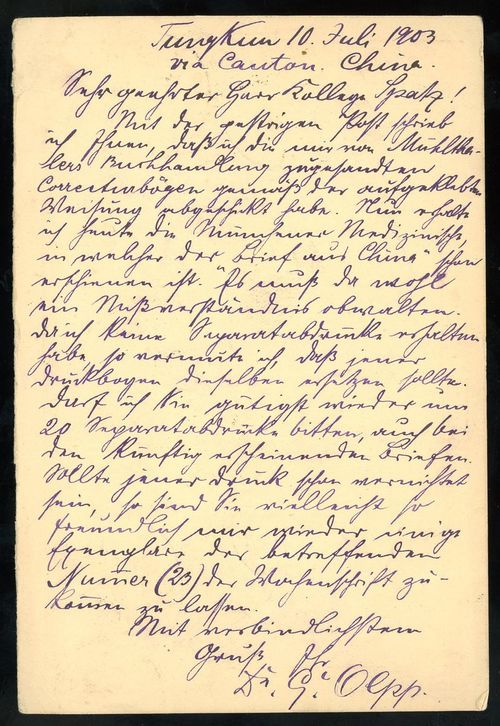 TungKun 10. Juli 1903
via Canton. China.
Sehr geehrter Herr Kollege Spatz!
Mit der gestrigen Post schrieb
ich Ihnen, daß ich die mir von Mühltha-
lers Buchhandlung zugesandten
Correcturbögen gemäß der aufgeklebten
Weisung abgeschickt habe. Nun erhalte
ich heute die Münchener Medizinische,
in welcher der Brief aus China" schon
erschienen ist. Es muß da wohl
ein Mißverständnis obwalten.
Da ich keine Separatabdrücke erhalten
habe, so vermute ich, daß jener
Druckbogen dieselben ersetzen sollte.
Darf ich Sie gütigst wieder um
20 Separatabdrücke bitten, auch bei
den künftig erscheinenden Briefen.
Sollte jener Druck schon vernichtet
sein, so sind Sie vielleicht so
freundlich mir wieder einige
Exemplare der betreffenden
Nummer (23) der Wochenschrift zu-
kommen zu lassen.
Mit verbindlichstem
Gruß Ihr
Dr. G. Olpp.